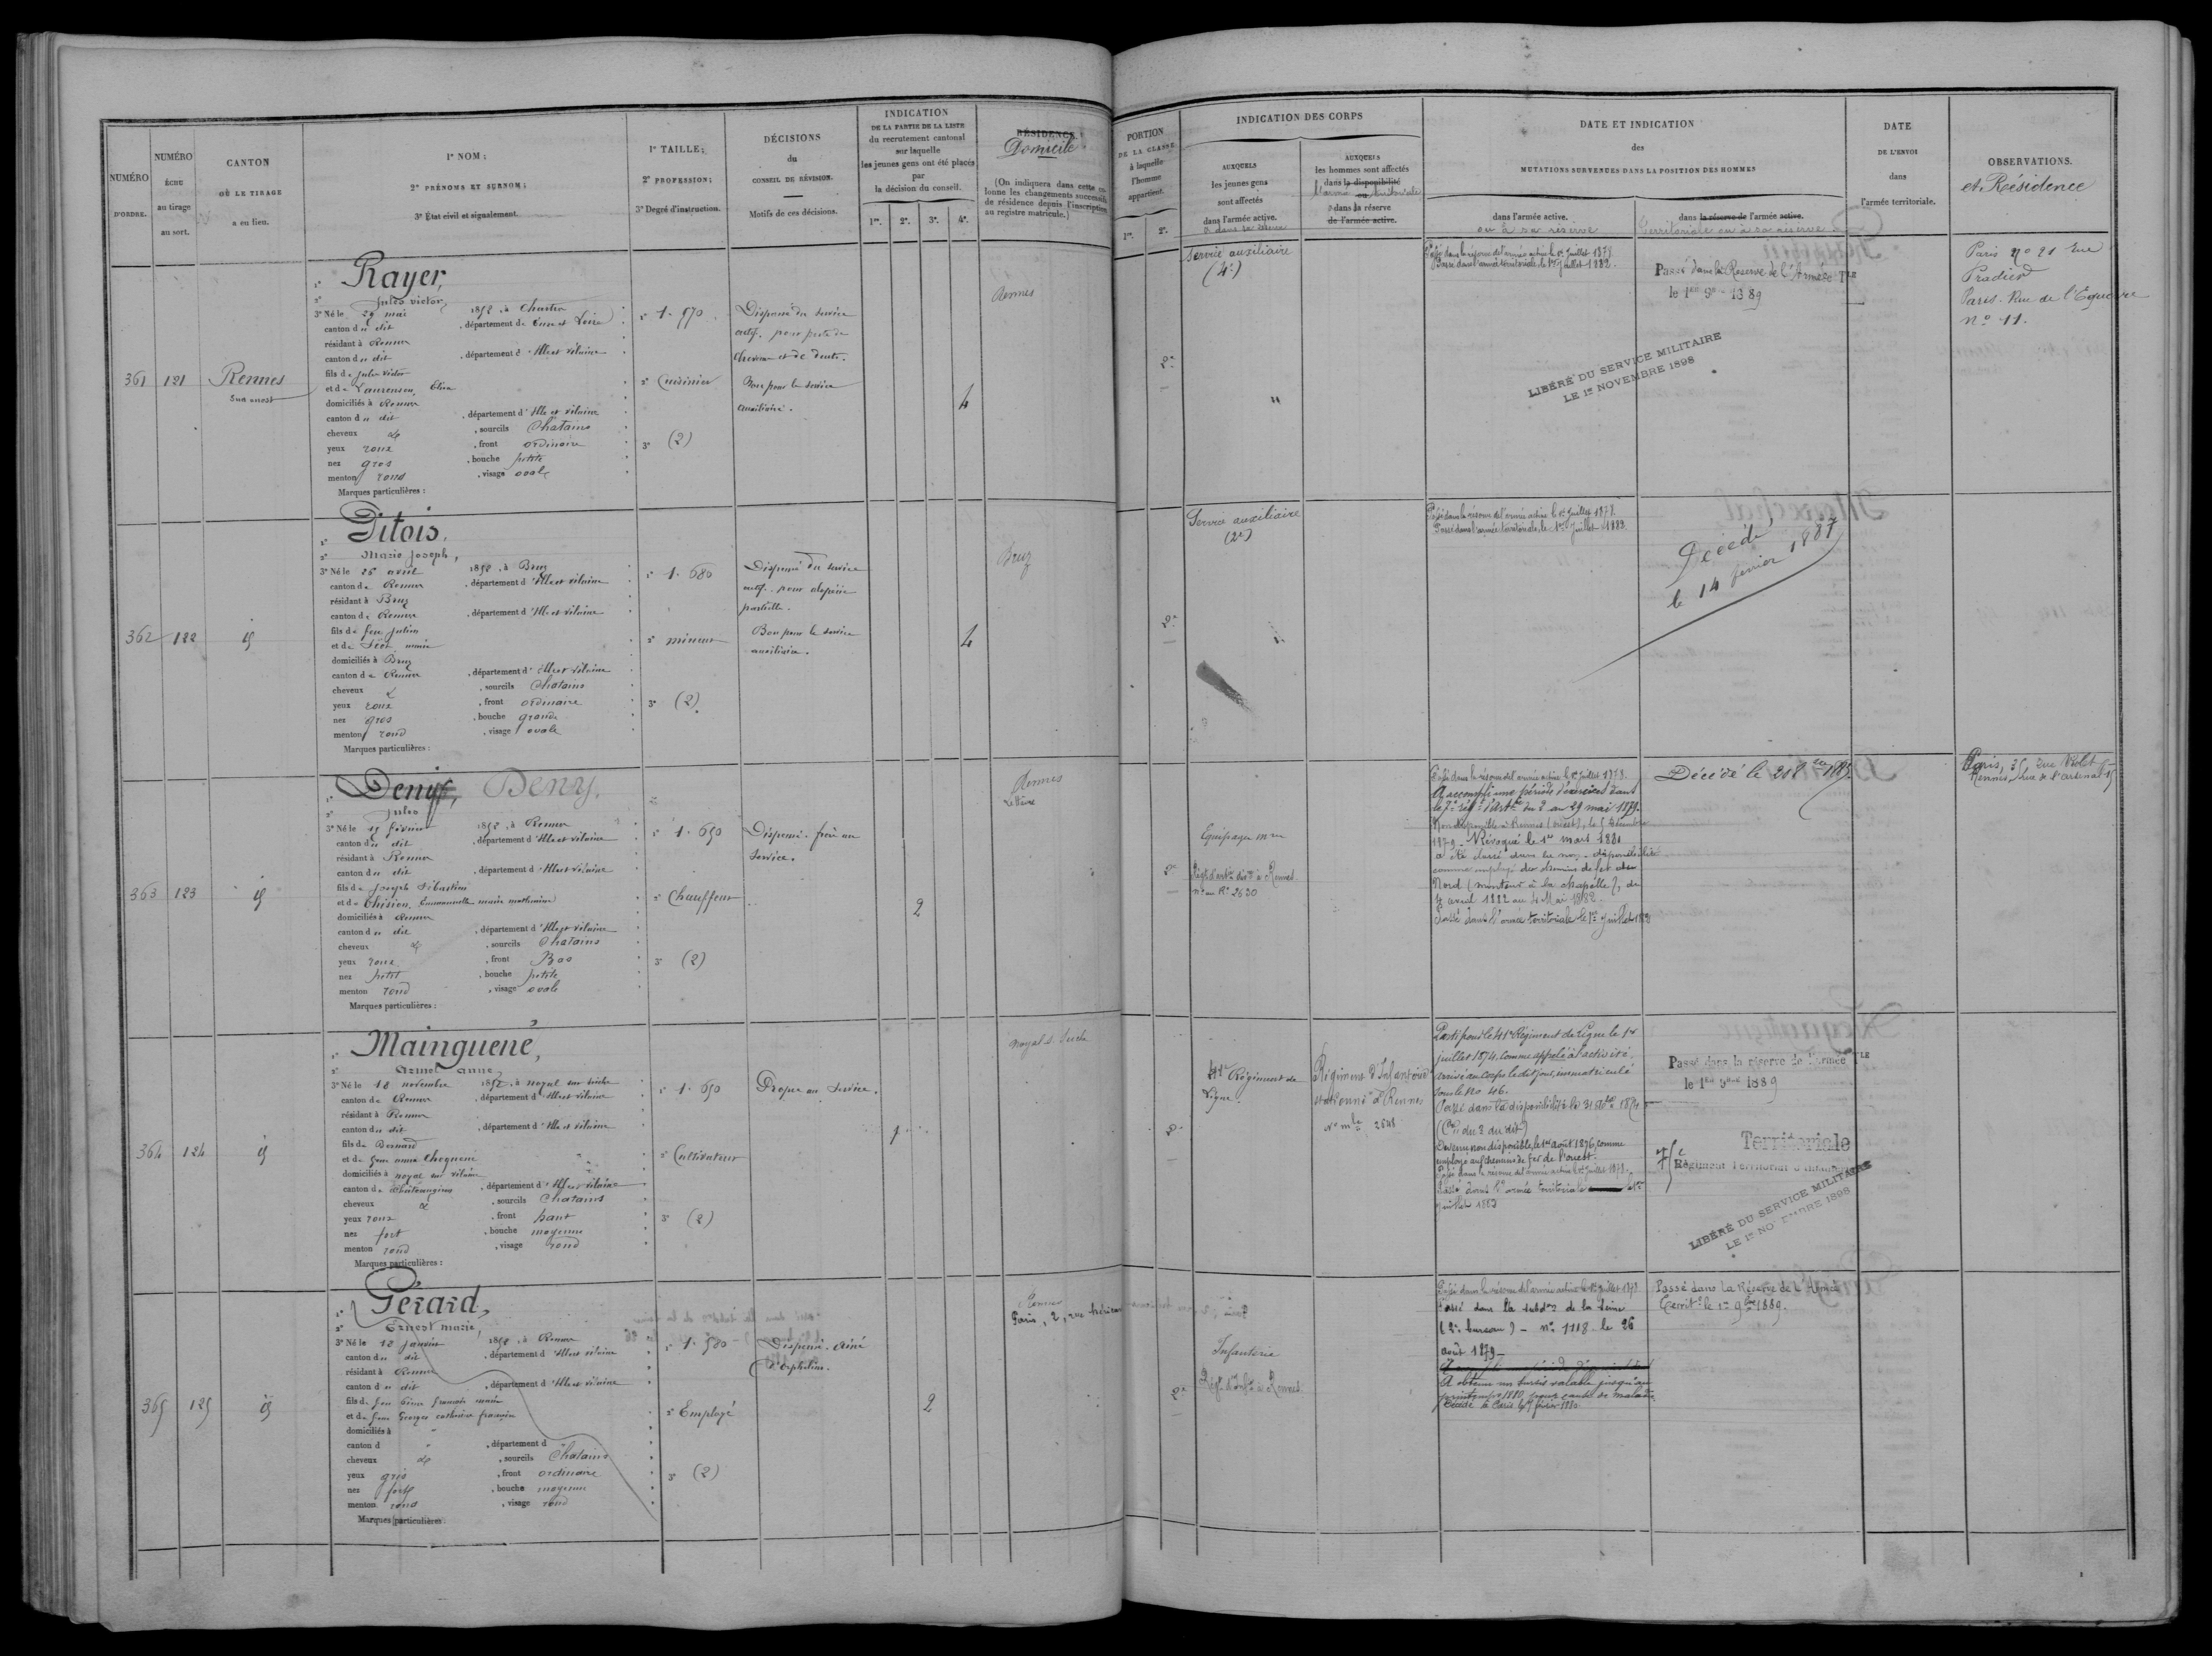 NUMÉRO
D'ORDRE.
NUMÉRO
ÉCHU
au tirage
au sort.
CANTON
OÙ LE TIRAGE
a eu lieu.
1° NOM;
2° PRÉNOMS ET SURNOM;
3° État civil et signalement.
1° TAILLE;
2° PROFESSION;
3° Degré d'instruction.
DÉCISIONS
du
CONSEIL DE RÉVISION.
Motifs de ces décisions.
INDICATION
DE LA PARTIE DE LA LISTE
du recrutement cantonal
sur laquelle
les jeunes gens ont été placés
par
la décision du conseil.
1re. 2e. 3e. 4e.
RÉSIDENCE
Domicile
(On indiquera dans cette co-
lonne les changements successifs
de résidence depuis l'inscription
au registre matricule.)
PORTION
DE LA CLASSE
à laquelle
l'homme
appartient.
1re. 2e.
INDICATION DES CORPS
AUXQUELS
les jeunes gens
sont affectés
dans l'armée active.
AUXQUELS
les hommes sont affectés
dans la disponibilité
ou
dans la réserve
de l'armée active.
DATE ET INDICATION
des
MUTATIONS SURVENUES DANS LA POSITION DES HOMMES
dans l'armée active.
ou à sa réserve
dans la réserve de l'armée active.
Territoriale ou à sa réserve
DATE
DE L'ENVOI
dans
l'armée territoriale.
OBSERVATIONS.
et Résidence
361 121 Rennes
Sud ouest
1° Rayer,
2° Jules victor,
3° Né le 29 mai 1852, à Chartres
canton du dit, département de Eure et Loire
résidant à Rennes
canton du dit, département d'Ille et Vilaine
fils de Jules Victor
et de Elisa
domiciliés à Rennes
canton du dit, département d'Ille et Vilaine
cheveux, sourcils Chatains
yeux roux, front ordinaire
nez gros, bouche petite
menton rond, visage ovale
Marques particulières :
1° 1.570
2° Cuisinier
3° (2)
Dispensé du service
actif. pour perte de
cheveux et de dents.
Bon pour le service
auxiliaire.
4
Rennes
2e
Service auxiliaire
(4e)
Passé dans la réserve de l'armée active le 1er Juillet 1878.
Passé dans l'armée territoriale, le 1er Juillet 1882.
Passé dans la Réserve de l'Armée Tle
le 1er 9bre 1889
LIBÉRÉ DU SERVICE MILITAIRE
LE 1er NOVEMBRE 1898
Paris no 21 Rue
Pradier
Paris. Rue de l'Equerre
No 11.
362 122 id
1° Pitois,
2° Marie Joseph,
3° Né le 26 avril 1852, à Bruz
canton de Rennes, département d'Ille et Vilaine
résidant à Bruz
canton de Rennes, département d'Ille et Vilaine
fils de feu Julien
et de marie
domiciliés à Bruz
canton de Rennes, département d'Ille et Vilaine
cheveux, sourcils Chatains
yeux roux, front ordinaire
nez gros, bouche grande
menton rond, visage ovale
Marques particulières :
1° 1.680
2° mineur
3° (2)
Dispensé du service
actif. pour alopécie
partielle.
Bon pour le service
auxiliaire.
4
Bruz
2e
Service auxiliaire
(2e)
Passé dans la réserve de l'armée active le 1er Juillet 1878.
Passé dans l'armée territoriale, le 1er Juillet 1882.
Décédé
le 14 février 1887
363 123 id
1° Denys, Deny,
2° Jules
3° Né le 15 février 1852, à Rennes
canton du dit, département d'Ille et Vilaine
résidant à Rennes
canton du dit, département d'Ille et Vilaine
fils de Joseph Sébastien
et de Emmanuelle marie mathurine
domiciliés à Rennes
canton du dit, département d'Ille et Vilaine
cheveux, sourcils Chatains
yeux roux, front Bas
nez petit, bouche petite
menton rond, visage ovale
Marques particulières :
1° 1.650
2° Chauffeur
3° (2)
Dispensé. frère au
Service.
2
Rennes
2e
Equipages
No au Rre 2630
Passé dans la réserve de l'armée active le 1er Juillet 1878.
A accompli une période d'exercices dans
le 7e régt d'Artie du 2 au 29 mai 1879.
Non disponible à Rennes (ouest), le 5 décembre
1879 - Révoqué le 1er mars 1881
a été classé dans la non-disponibilité
comme employé des chemins de fer du
Nord (monteur à la chapelle), du
4 avril 1882 au 4 Mai 1882.
Passé dans l'armée territoriale le 1er Juillet 1882
Décédé le
Paris, 35, rue Violet
Rennes, Rue de l'arsenal 15
364 124 id
1° Mainguené,
2° Armel anne,
3° Né le 18 novembre 1852, à noyal sur seiche
canton de Rennes, département d'Ille et Vilaine
résidant à Rennes
canton du dit, département d'Ille et Vilaine
fils de Bernard
et de feue anne
domiciliés à noyal sur vilaine
canton de Chateaugiron, département d'Ille et Vilaine
cheveux, sourcils Chatains
yeux roux, front haut
nez fort, bouche moyenne
menton rond, visage rond
Marques particulières :
1° 1.650
2° Cultivateur
3° (2)
Propre au Service.
1
noyal s. Seiche
2e
41e Régiment de
Ligne.
Régiment d'Infanterie
stationné à Rennes
No mle 2648
Parti pour le 41e Régiment de Ligne le 1er
juillet 1874. Comme appelé à l'activité,
arrivé au Corps le dit jour, immatriculé
sous le No 46.
Passé dans la disponibilité le 31
Devenu non disponible le 1er août 1876, comme
employé aux chemins de fer de l'ouest.
Passé dans la réserve de l'armée active le 1er Juillet 1878.
Passé dans l'armée territoriale le 1er
Juillet 1882
Passé dans la réserve de l'armée TLE
le 1er 9bre 1889
Territoriale
75e
Régiment Territorial d'Infanterie
LIBÉRÉ DU SERVICE MILITAIRE
LE 1er NOVEMBRE 1898
365 125 id
1° Gérard,
2° Ernest marie,
3° Né le 12 janvier 1852, à Rennes
canton du dit, département d'Ille et Vilaine
résidant à Rennes
canton du dit, département d'Ille et Vilaine
fils de feu françois marie
et de feue Georges catherine
domiciliés à
canton d, département d
cheveux, sourcils Chatains
yeux gris, front ordinaire
nez fort, bouche moyenne
menton rond, visage rond
Marques particulières :
1° 1.580
2° Employé
3° (2)
Dispensé. Ainé
d'orphelins.
2
Rennes
Paris, 2, rue
2e
Infanterie
Régt d'Infie à Rennes
Passé dans la réserve de l'armée active le 1er Juillet 1878
Passé dans la subdon de la Seine
(2e bureau) - no 1118 le 26
août 1879 -
A obtenu un sursis valable jusqu'au
printemps 1880, pour cause de maladie.
Décédé à Paris le février 1880
Passé dans la Réserve de l'Armée
Territle le 1er 9bre 1889.